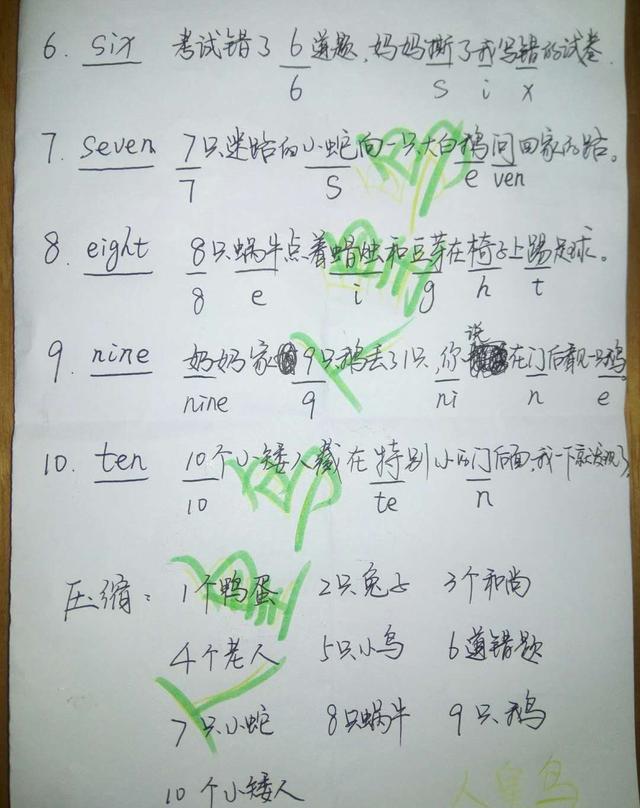 6. six 考试错了6道题,妈妈撕了我写错的试卷
6 s i x
7. seven 7只迷路的小蛇向一只大白鹅问回家的路。
7 s e ven
8. eight 8只蜗牛点着蜡烛和豆芽在椅子上踢足球。
8 e i g h t
说
9. nine 奶奶家9只鹅丢了1只,你在门后看见一只鹅。
nine 9 ni n e
10. ten 10个小矮人藏在特别小的门后面,我一下就发现了
10 te n
压缩: 1个鸭蛋 2只兔子 3个和尚
4个老人 5只小鸟 6道错题
7只小蛇 8只蜗牛 9只鹅
10个小矮人